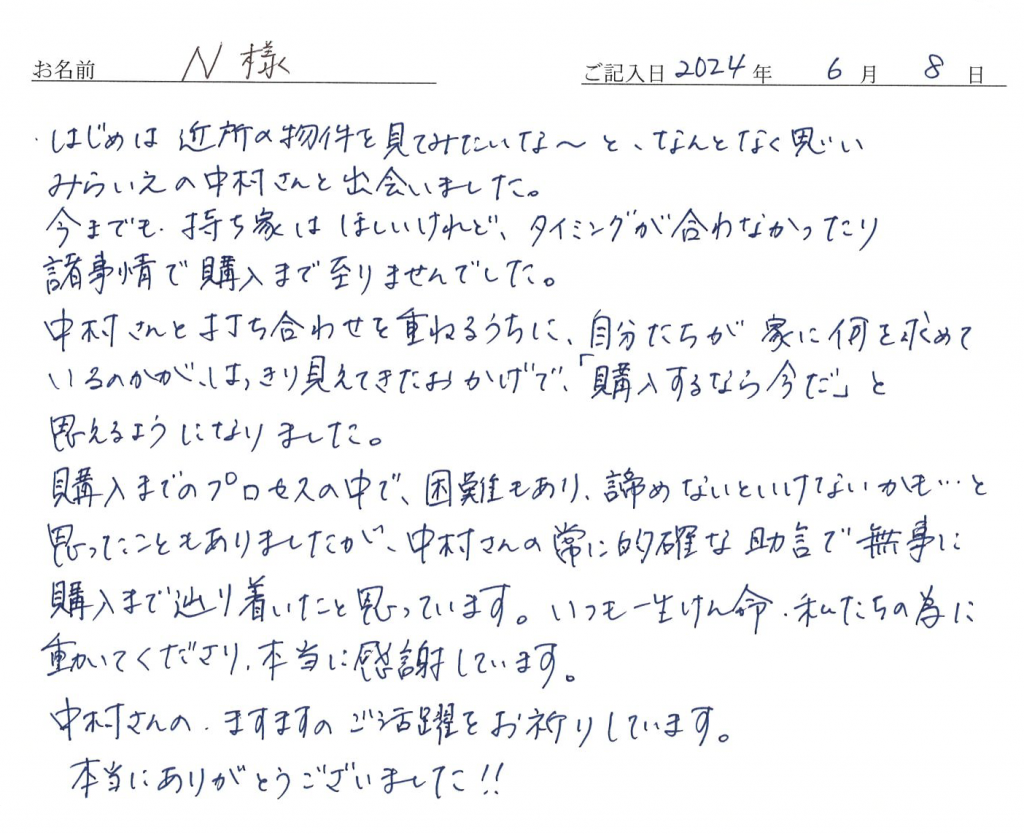 お名前 N 様 ご記入日 2024年 6月 8日
はじめは 近所の物件を見てみたいな〜と、なんとなく思い
みらいえの中村さんと出会いました。
今までも、持ち家は ほしいけれど、タイミングが合わなかったり
諸事情で購入まで至りませんでした。
中村さんと打ち合わせを重ねるうちに、自分たちが 家に何を求めて
いるのかが、はっきり見えてきたおかげで、「購入するなら今だ」と
思えるようになりました。
購入までのプロセスの中で、困難もあり、諦めないといけないかも…と
思ったこともありましたが、中村さんの常に的確な助言で無事に
購入まで辿り着いたと思っています。いつも一生けん命、私たちの為に
動いてくださり、本当に感謝しています。
中村さんの、ますますのご活躍をお祈りしています。
本当にありがとうございました!!